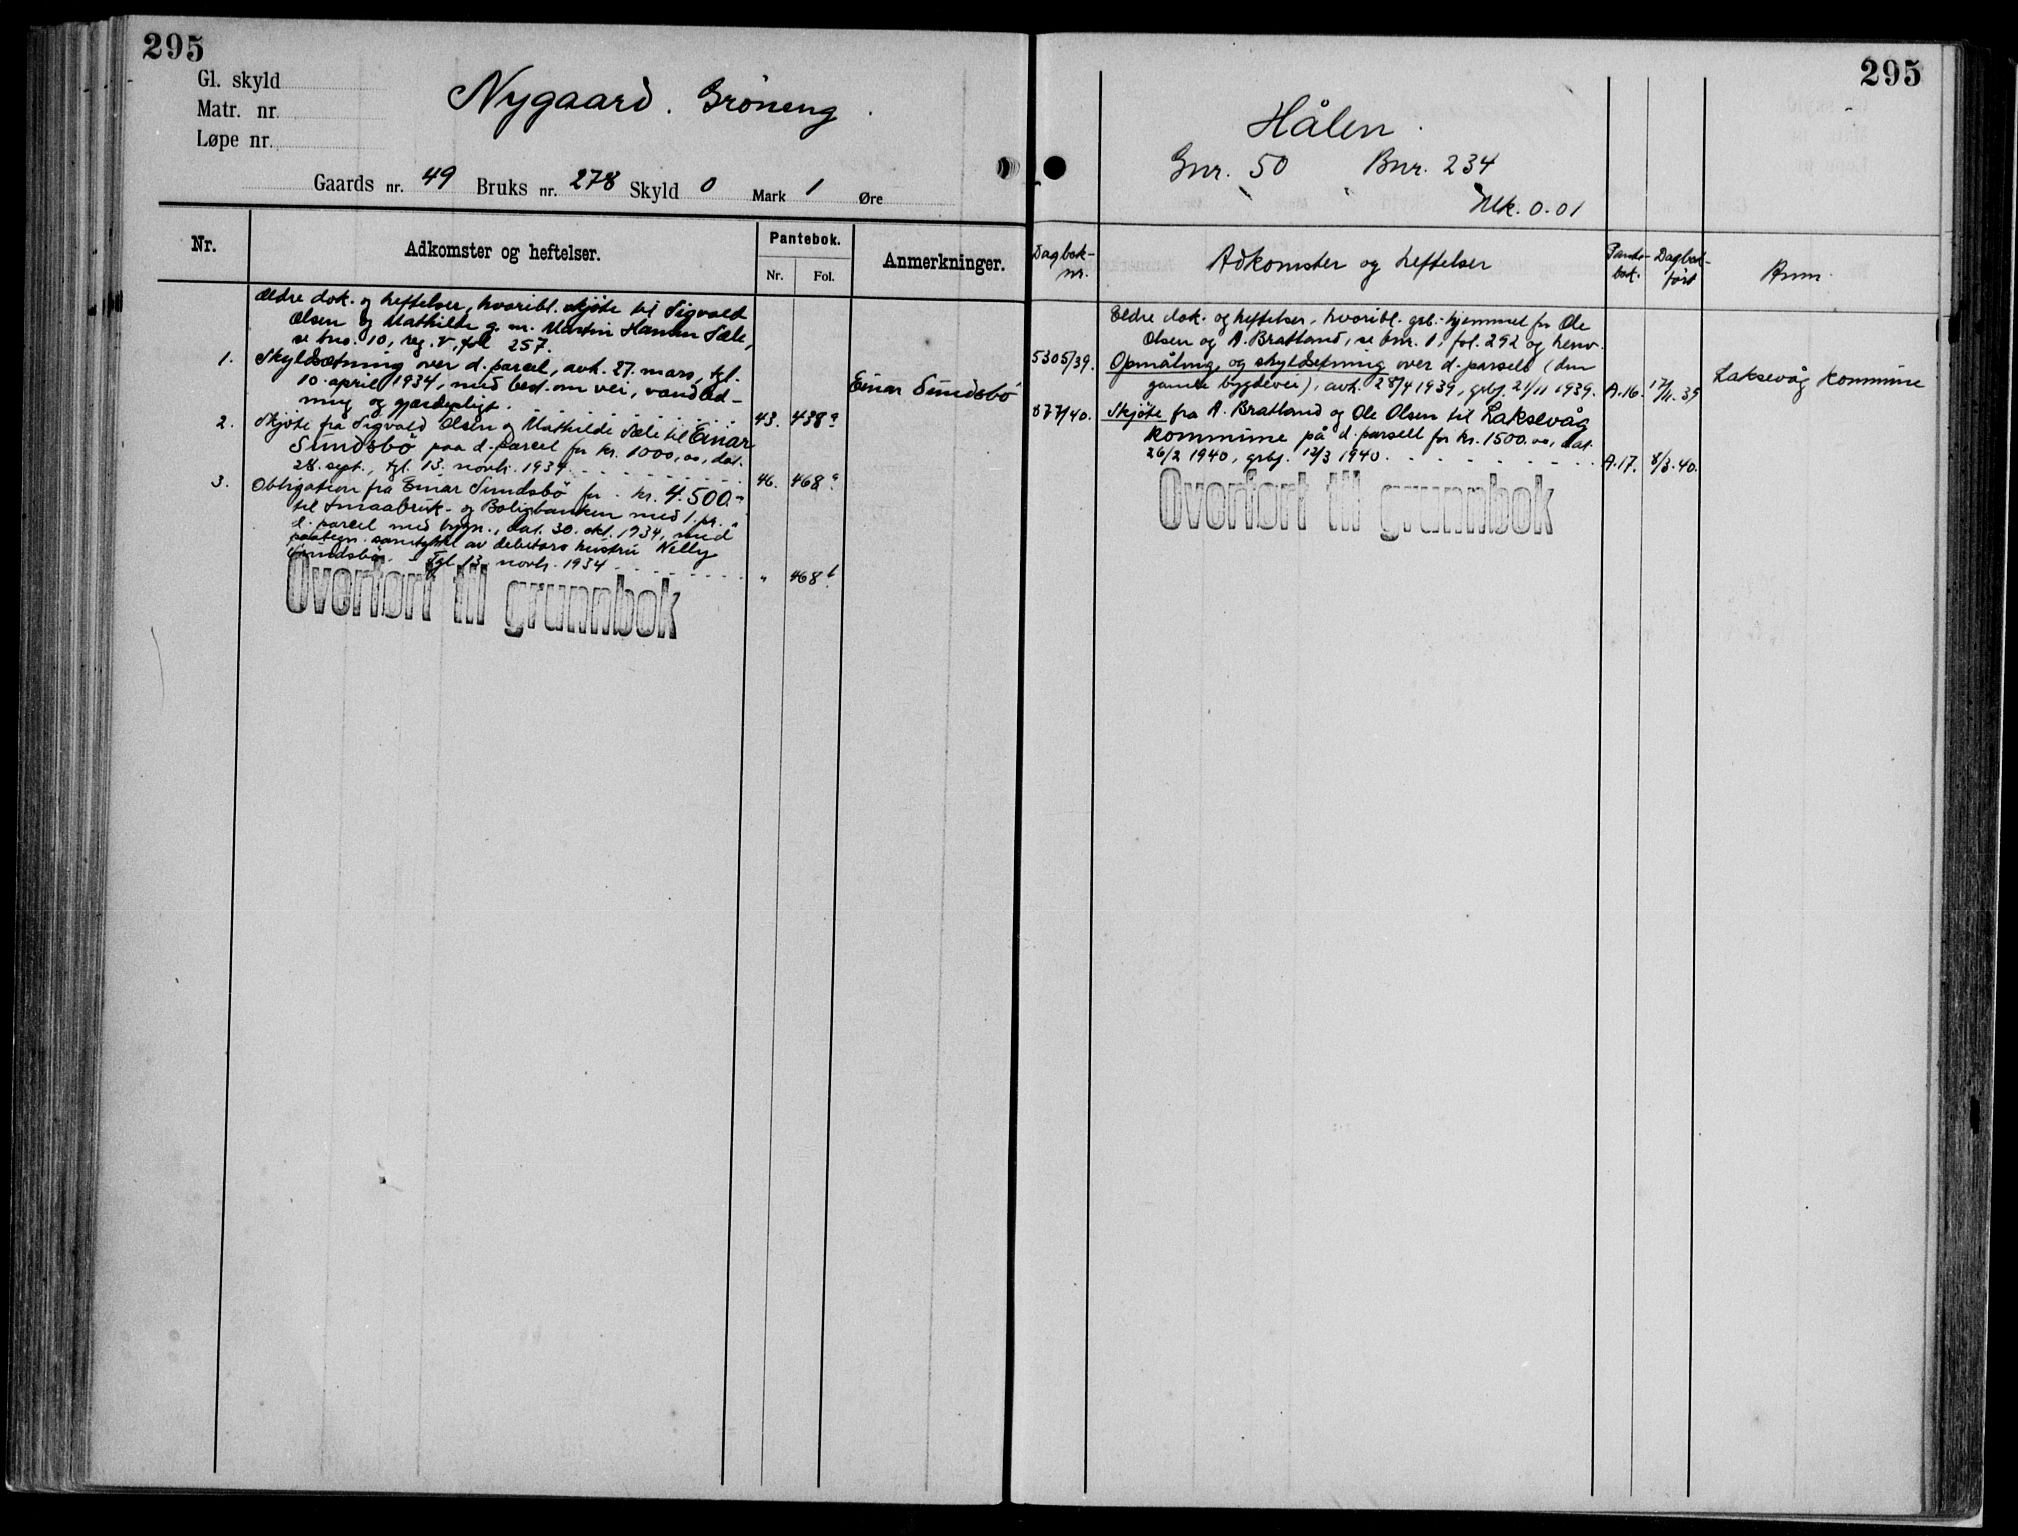 295
Gl. skyld
Matr. nr.
Løpe nr.
Nygaard. Gröneng.
Gaards nr. 49 Bruks nr. 278 Skyld 0 Mark 1 Øre
Nr. Adkomster og heftelser. Pantebok. Nr. Fol. Anmerkninger.
Ældre dok. og heftelser, hvoribl. skjöte til Sigvald
Olsen og Mathilde g. m. Martin Hansen Sæle,
se bno. 10, reg. V, fol 257.
1. Skyldsetning over d. parcel, avh. 27. mars, tgl.
10. april 1934, med best. om vei, vandled-
ning og gjærdepligt. 43. 438a
Einar Sundsbö
2. Skjöte fra Sigvald Olsen og Mathilde Sæle til Einar
Sundsbö paa d. parcel for kr. 1000,00, dat.
28. sept., tgl. 13. novbr. 1934. 46. 468a
3. Obligation fra Einar Sundsbö for kr. 4.500.-
til Smaabruk- og Boligbanken med 1. pr. i
d. parcel med bygn., dat. 30. okt. 1934, med
paategn. samtykke av debitors hustru Nelly
Sundsbö. Tgl. 13. novbr. 1934 " 468b
Overført til grunnbok
295
Hålen.
Gnr. 50 Bnr. 234
Mk. 0.01
Dagbok-nr. Adkomster og heftelser Pante-bok. Dagbok-ført Anm.
Eldre dok. og heftelser, hvoribl. grb.-hjemmel for Ole
Olsen og A. Bratland, se bnr. 1, fol. 292 og henv.
5305/39. Opmåling og skyldsetning over d. parsell (den
gamle bygdevei), avh. 28/4 1939, grbf. 21/11 1939. A.16. 17/11.39
Laksevåg kommune
877/40. Skjöte fra A. Bratland og Ole Olsen til Laksevåg
kommune på d. parsell for kr. 1500.00, dat.
26/2 1940, grbf. 12/3 1940. A.17. 8/3.40.
Overført til grunnbok